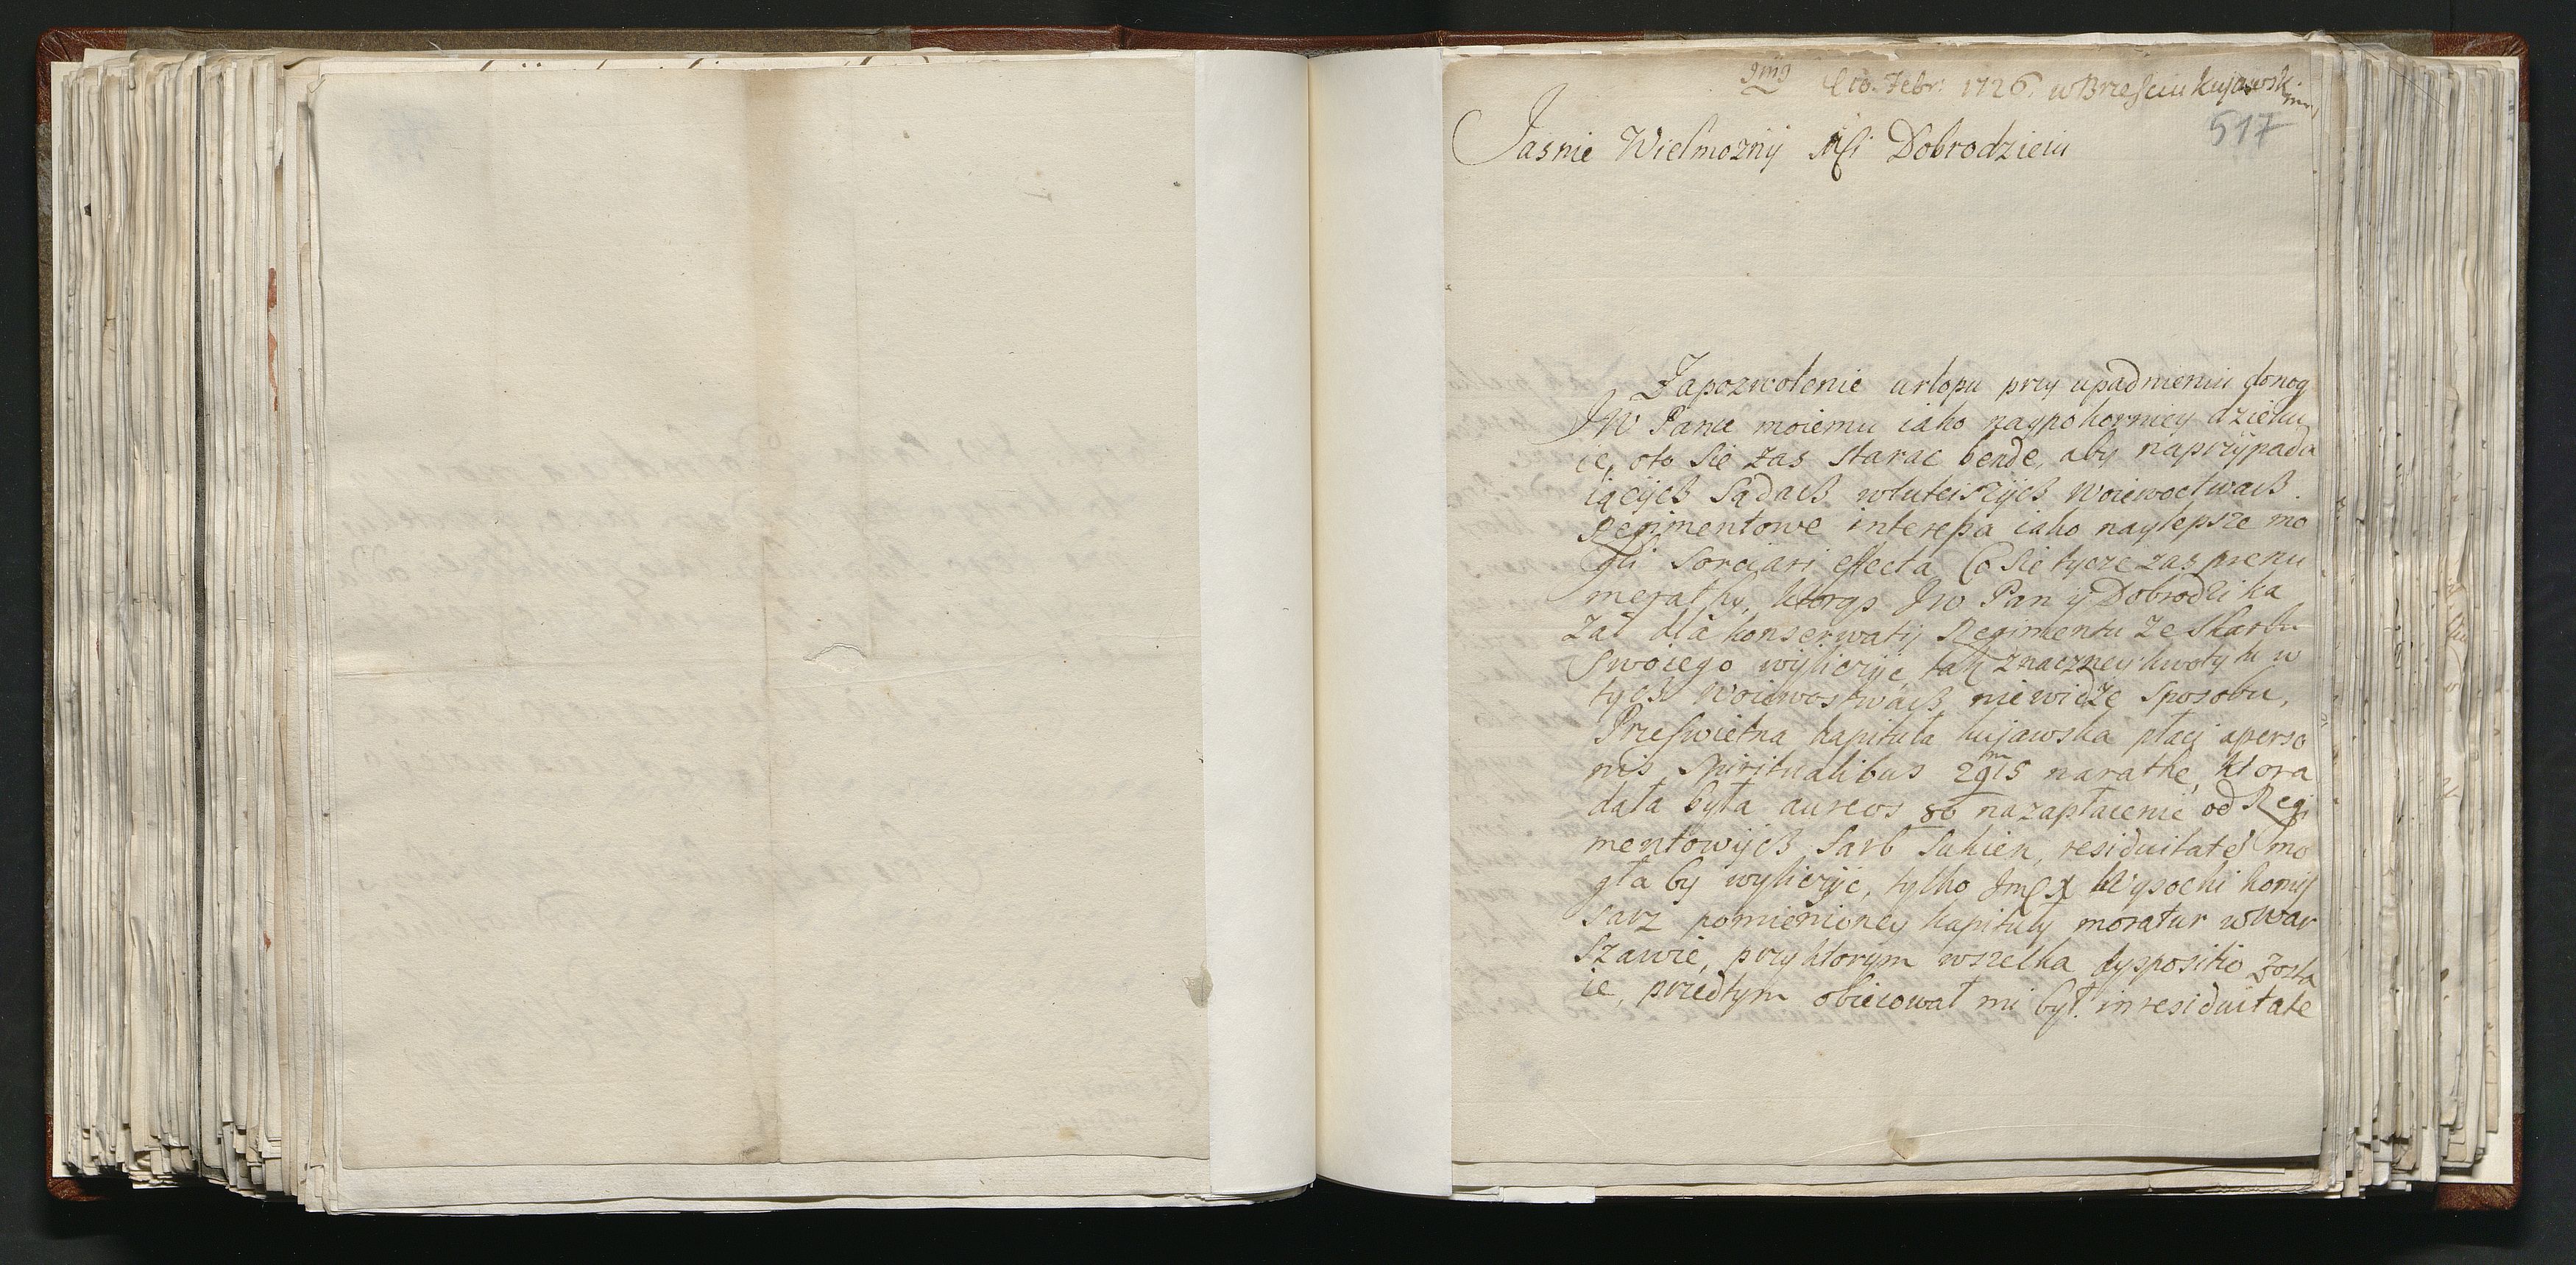 10. Febr: 1726. w Brzesciu kujawsk:
517
Jasnie Wielmozny Msi Dobrodzieiu
Zapozwolenie urlopu przy upadnieniu donog
JW Panu moiemu iako naypokorniey dzieku
ie, oto sie zas starac bende, aby naprzypada
iących sądach wtuteiszych woiewoctwach
Regimentowe interessa iako naylepsze mo
gli sorciari effecta Co sie tycze zas prenu
meraty, ktorą Jw Pan y Dobrodzi ka
zał dla konserwatij Regimentu ze skarbu
swoiego wyliczyc, tak znaczney kwoty w
tych woiewostwach niewidzę sposobu,
Preswietna kapituła kujawska płaci aperso
nis spiritualibus naratkę, ktora
data była aureos 80 nazapłacenie od Regi
mentowych farb sukien, residuitatem mo
gła by wyliczyc, tylko Jmć X Wysocki komis
sarz pomienioney kapituły moratur wwar
szawie, przyktorym wszelka dyspositio zosta
ie, przedtym obiecował mi był in residuitate